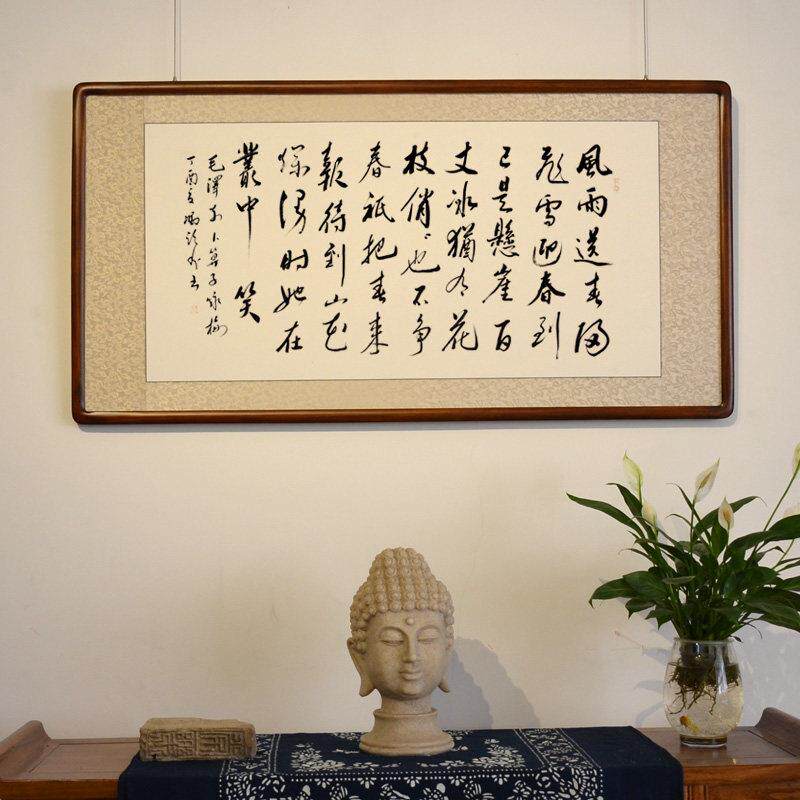 風雨送春归
飛雪迎春到
已是懸崖百
丈冰猶有花
枝俏〻也不争
春祇把春来
報待到山花
爛漫时她在
叢中笑
毛澤东卜算子咏梅
丁酉夏 书